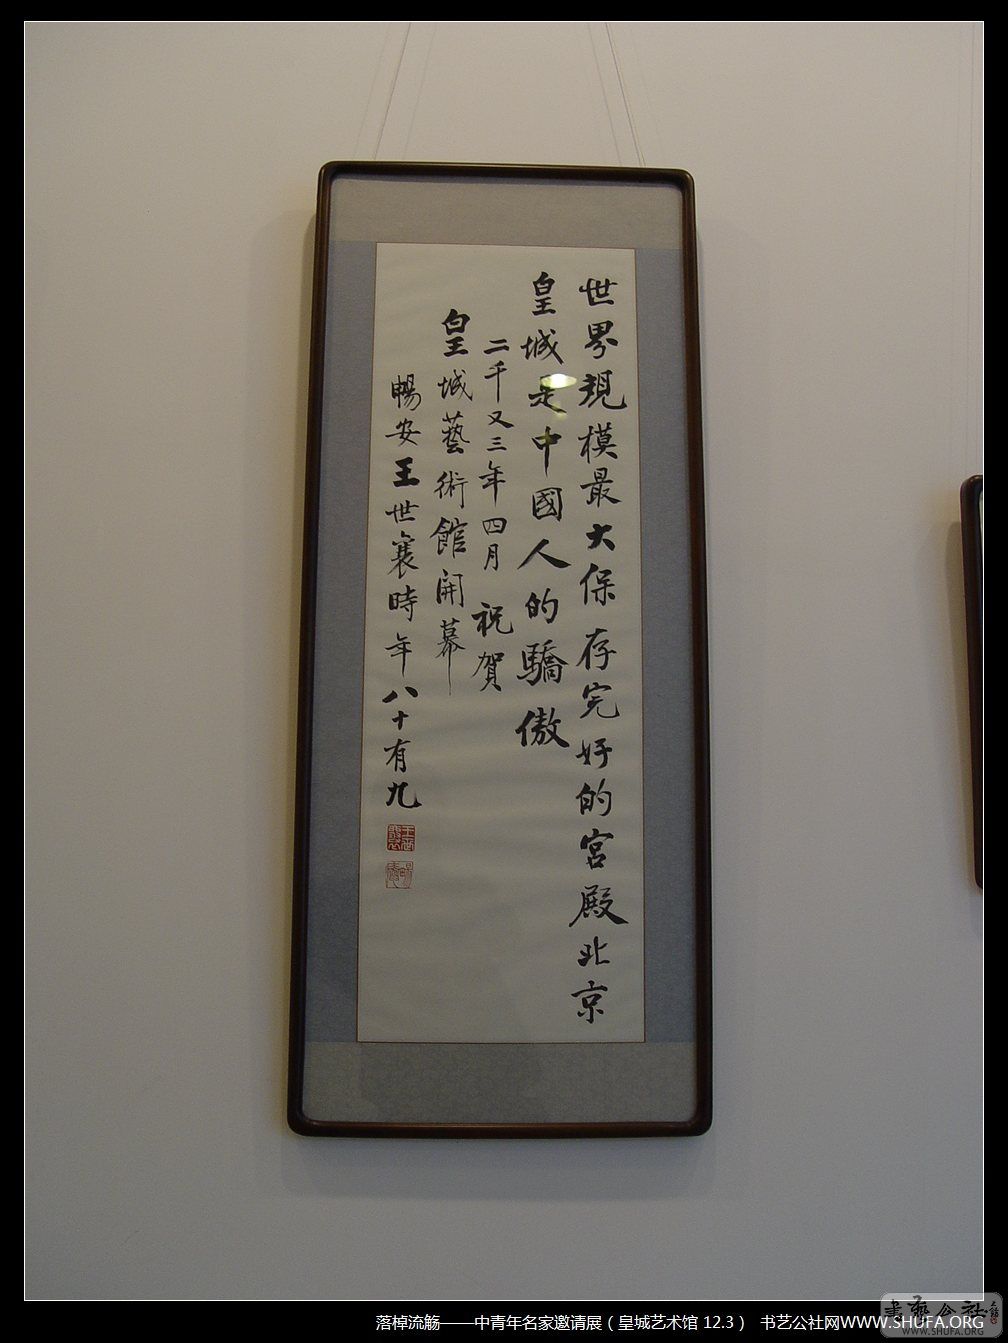 世界規模最大保存完好的宮殿北京
皇城是中國人的驕傲
二千又三年四月 祝賀
皇城藝術館開幕
暢安王世襄時年八十有九
落棹流觞——中青年名家邀请展（皇城艺术馆 12.3） 书艺公社网WWW.SHUFA.ORG
書藝公社
WWW.SHUFA.ORG